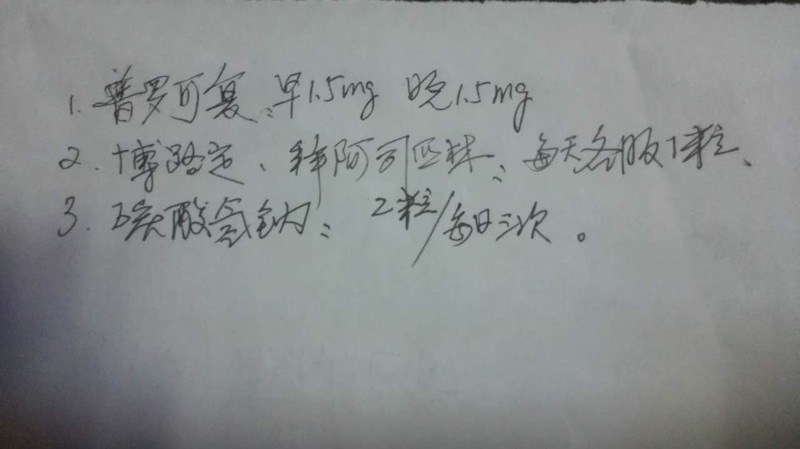 1. 普罗可复：早1.5mg 晚1.5mg
2. 博路定、拜阿司匹林：每天各服1粒、
3. 碳酸氢钠：2粒/每日三次。